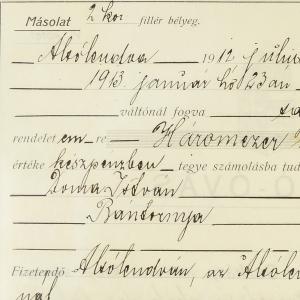 Másolat 2 kor fillér bélyeg.
Alsólendva 1912 július
1913 január hó 23 án
váltónál fogva
rendelet em re Háromezer
értéke készpénzben tegye számolásba tud
Doma István
Bántornya
Fizetendő Alsólendván, az Alsólen
nál